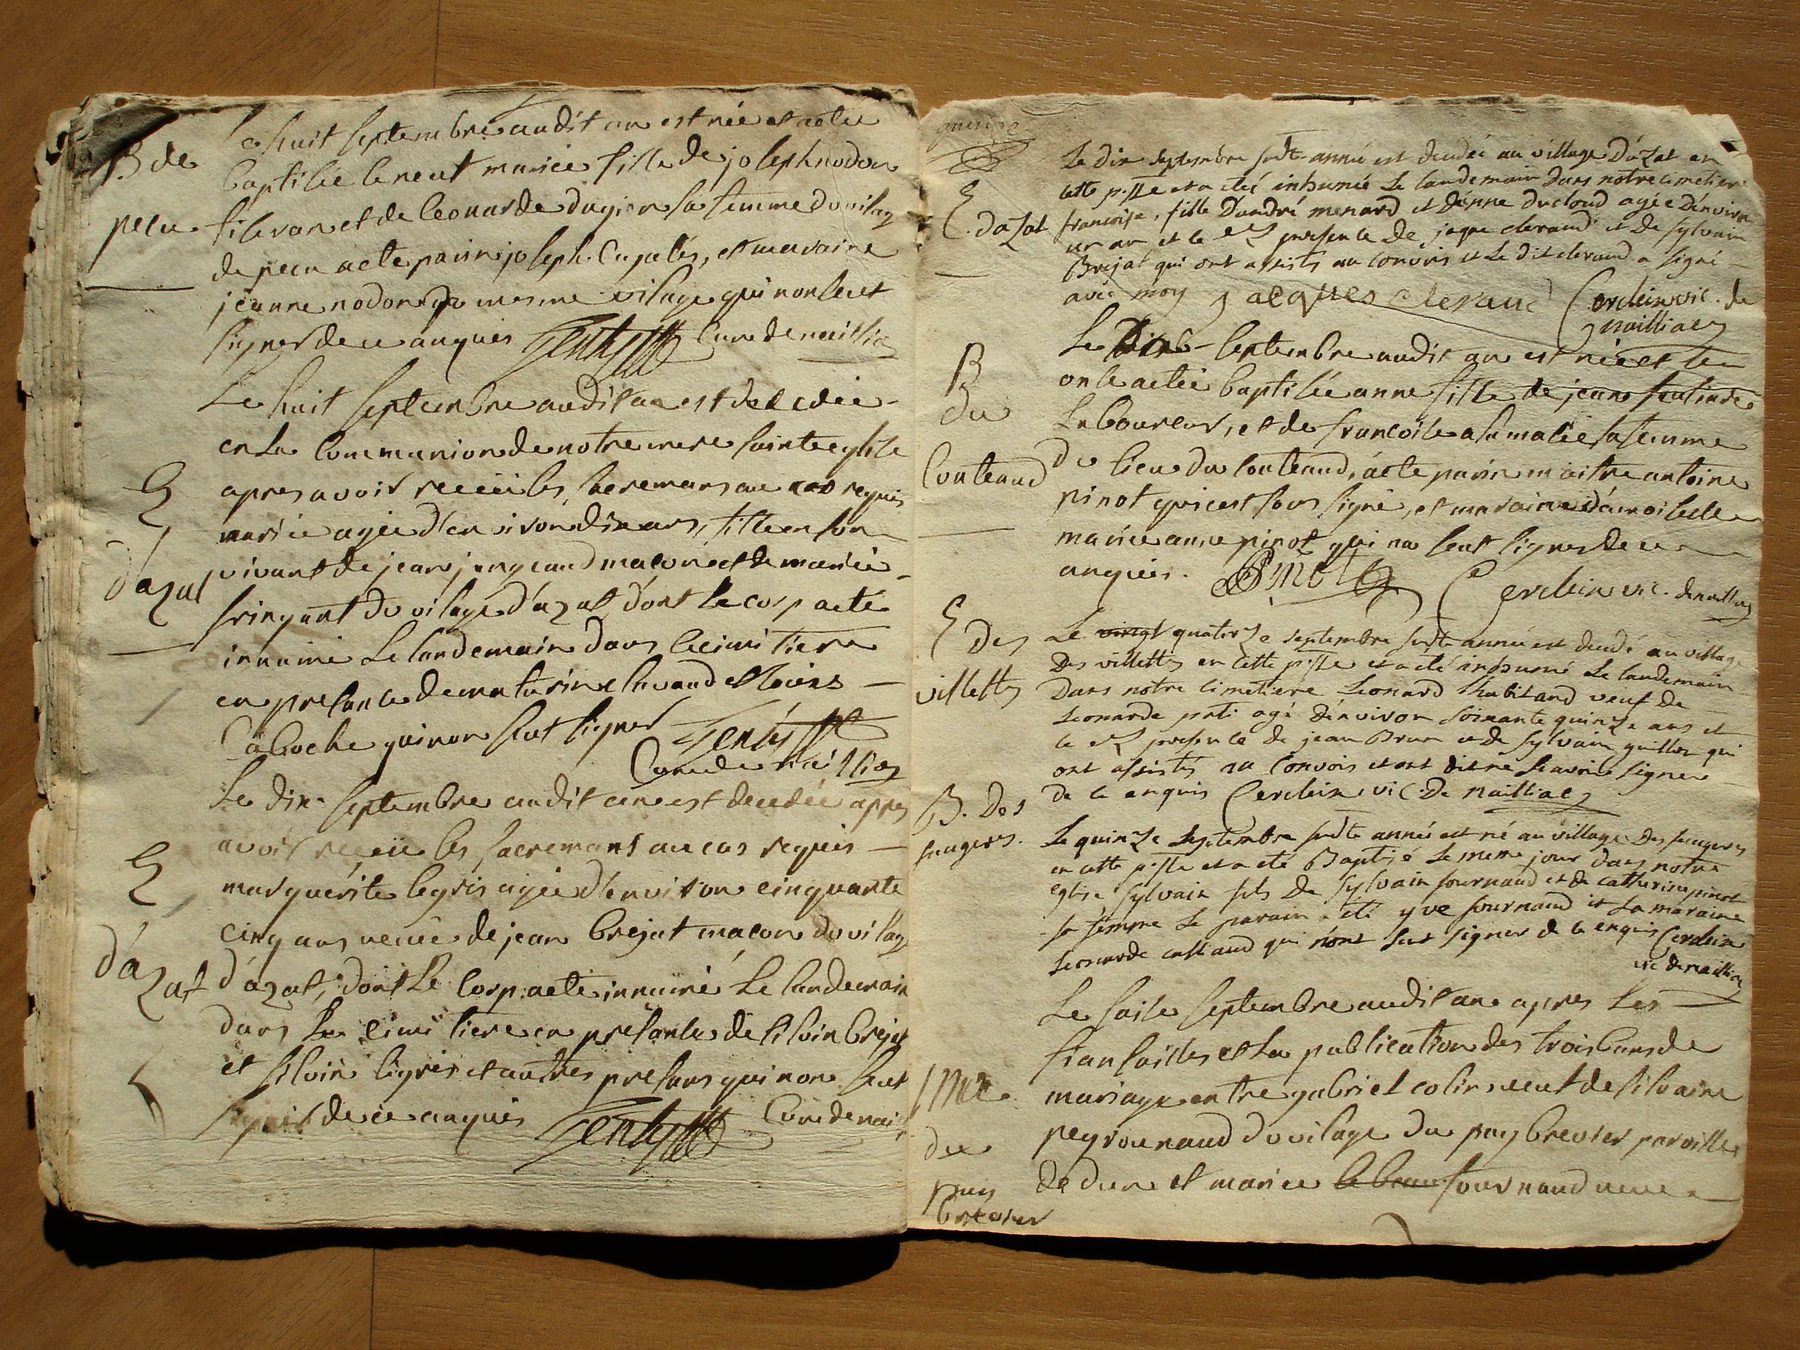 B de
pecu
Le huit septembre audit an est née et a ete
baptisée le neuf mariée fille de joseph nodon
et de leonarde dugier sa femme du vilag
de pecu a ete parin joseph et maraine
jeanne nodon du mesme vilage qui non seut
signer de ce anquis Curé de naillia
E
d'azat
Le huit septembre audit an est décédée
en La Communion de notre mere sainte eglise
apres avoir receü les sacremans au cas requis
mariée agée d'environ dix ans, fille en son
vivant de jean jungeaud macon et de mariée
fringant du vilage d'azat, dont Le corp a eté
innumé Le landemain dans le cimitiere
en presance de maturin et
Caboche qui non seut signer
Curé de
E
d'azat
Le dix septembre audit an est decedée apres
avoir receü les sacremans au cas requis
marguerite legris agée d'environ cinquante
cinq ans veuve de jean brejat macon du vilag
d'azat, dont Le Corp a ete innumé Le landemain
dans Le cimitiere en presance de silvin brejat
et silvin ligris et autres presans qui non seut
signer de ce anquis Curé de nail
E
d'azat
Le dix septembre susdte année est décédée au village D'azat en
cette psse et a été inhumée Le landemain dans notre cimetiere
francoise, fille D'andré menard et d'anne Ducloud agée D'environ
un an et ce en presence de jaque cleraud et de sylvain
Brejat qui ont assisté au convois et Le dit cleraud a signé
avec moy jacques cleraud Cerclein vic. de
nailliac
B
du
Couteaud
Le septembre audit an est née et Le
on le a eté baptisée anne fille de jean
Laboureur, et de francoise sa femme
du lieu du Couteaud, a ete parin maitre antoine
pinot qui c'est sous signé, et maraine damoiselle
mariée anne pinot qui na seut signer de ce
anquis. Pinot Cerclein vic. de naillac
E des
villettes
Le vingt quatorze septembre susdte année est décédé au village
Des villettes en cette psse et a été inhumé Le landemain
Dans notre cimetiere Leonard habitand veuf de
Leonarde petit agé D'environ soixante quinze ans et
ce en presence de jean Brun et de sylvain guillot qui
ont assistés au convois et ont dit ne scavoir signer
de ce enquis Cerclein vic. De nailliac
B. Des
feugeres.
Le quinze septembre susdte année est né au village Des feugeres
en cette psse et a été Baptisé Le meme jour dans notre
eglise sylvain fils De sylvain fournaud et de catherine pinot
sa femme Le parain a été yve fournaud et La maraine
Leonarde qui n'ont sut signer de ce enquis Cerclein
vic de nailliac
Mce
du
puy
breuier
Le saise septembre audit an apres Les
fiansailles et La publication des trois bans de
mariage entre gabriel colin veuf de silvaine
peyrounaud du vilage du puy breuier paroisse
de dun et mariée fournaud veuve